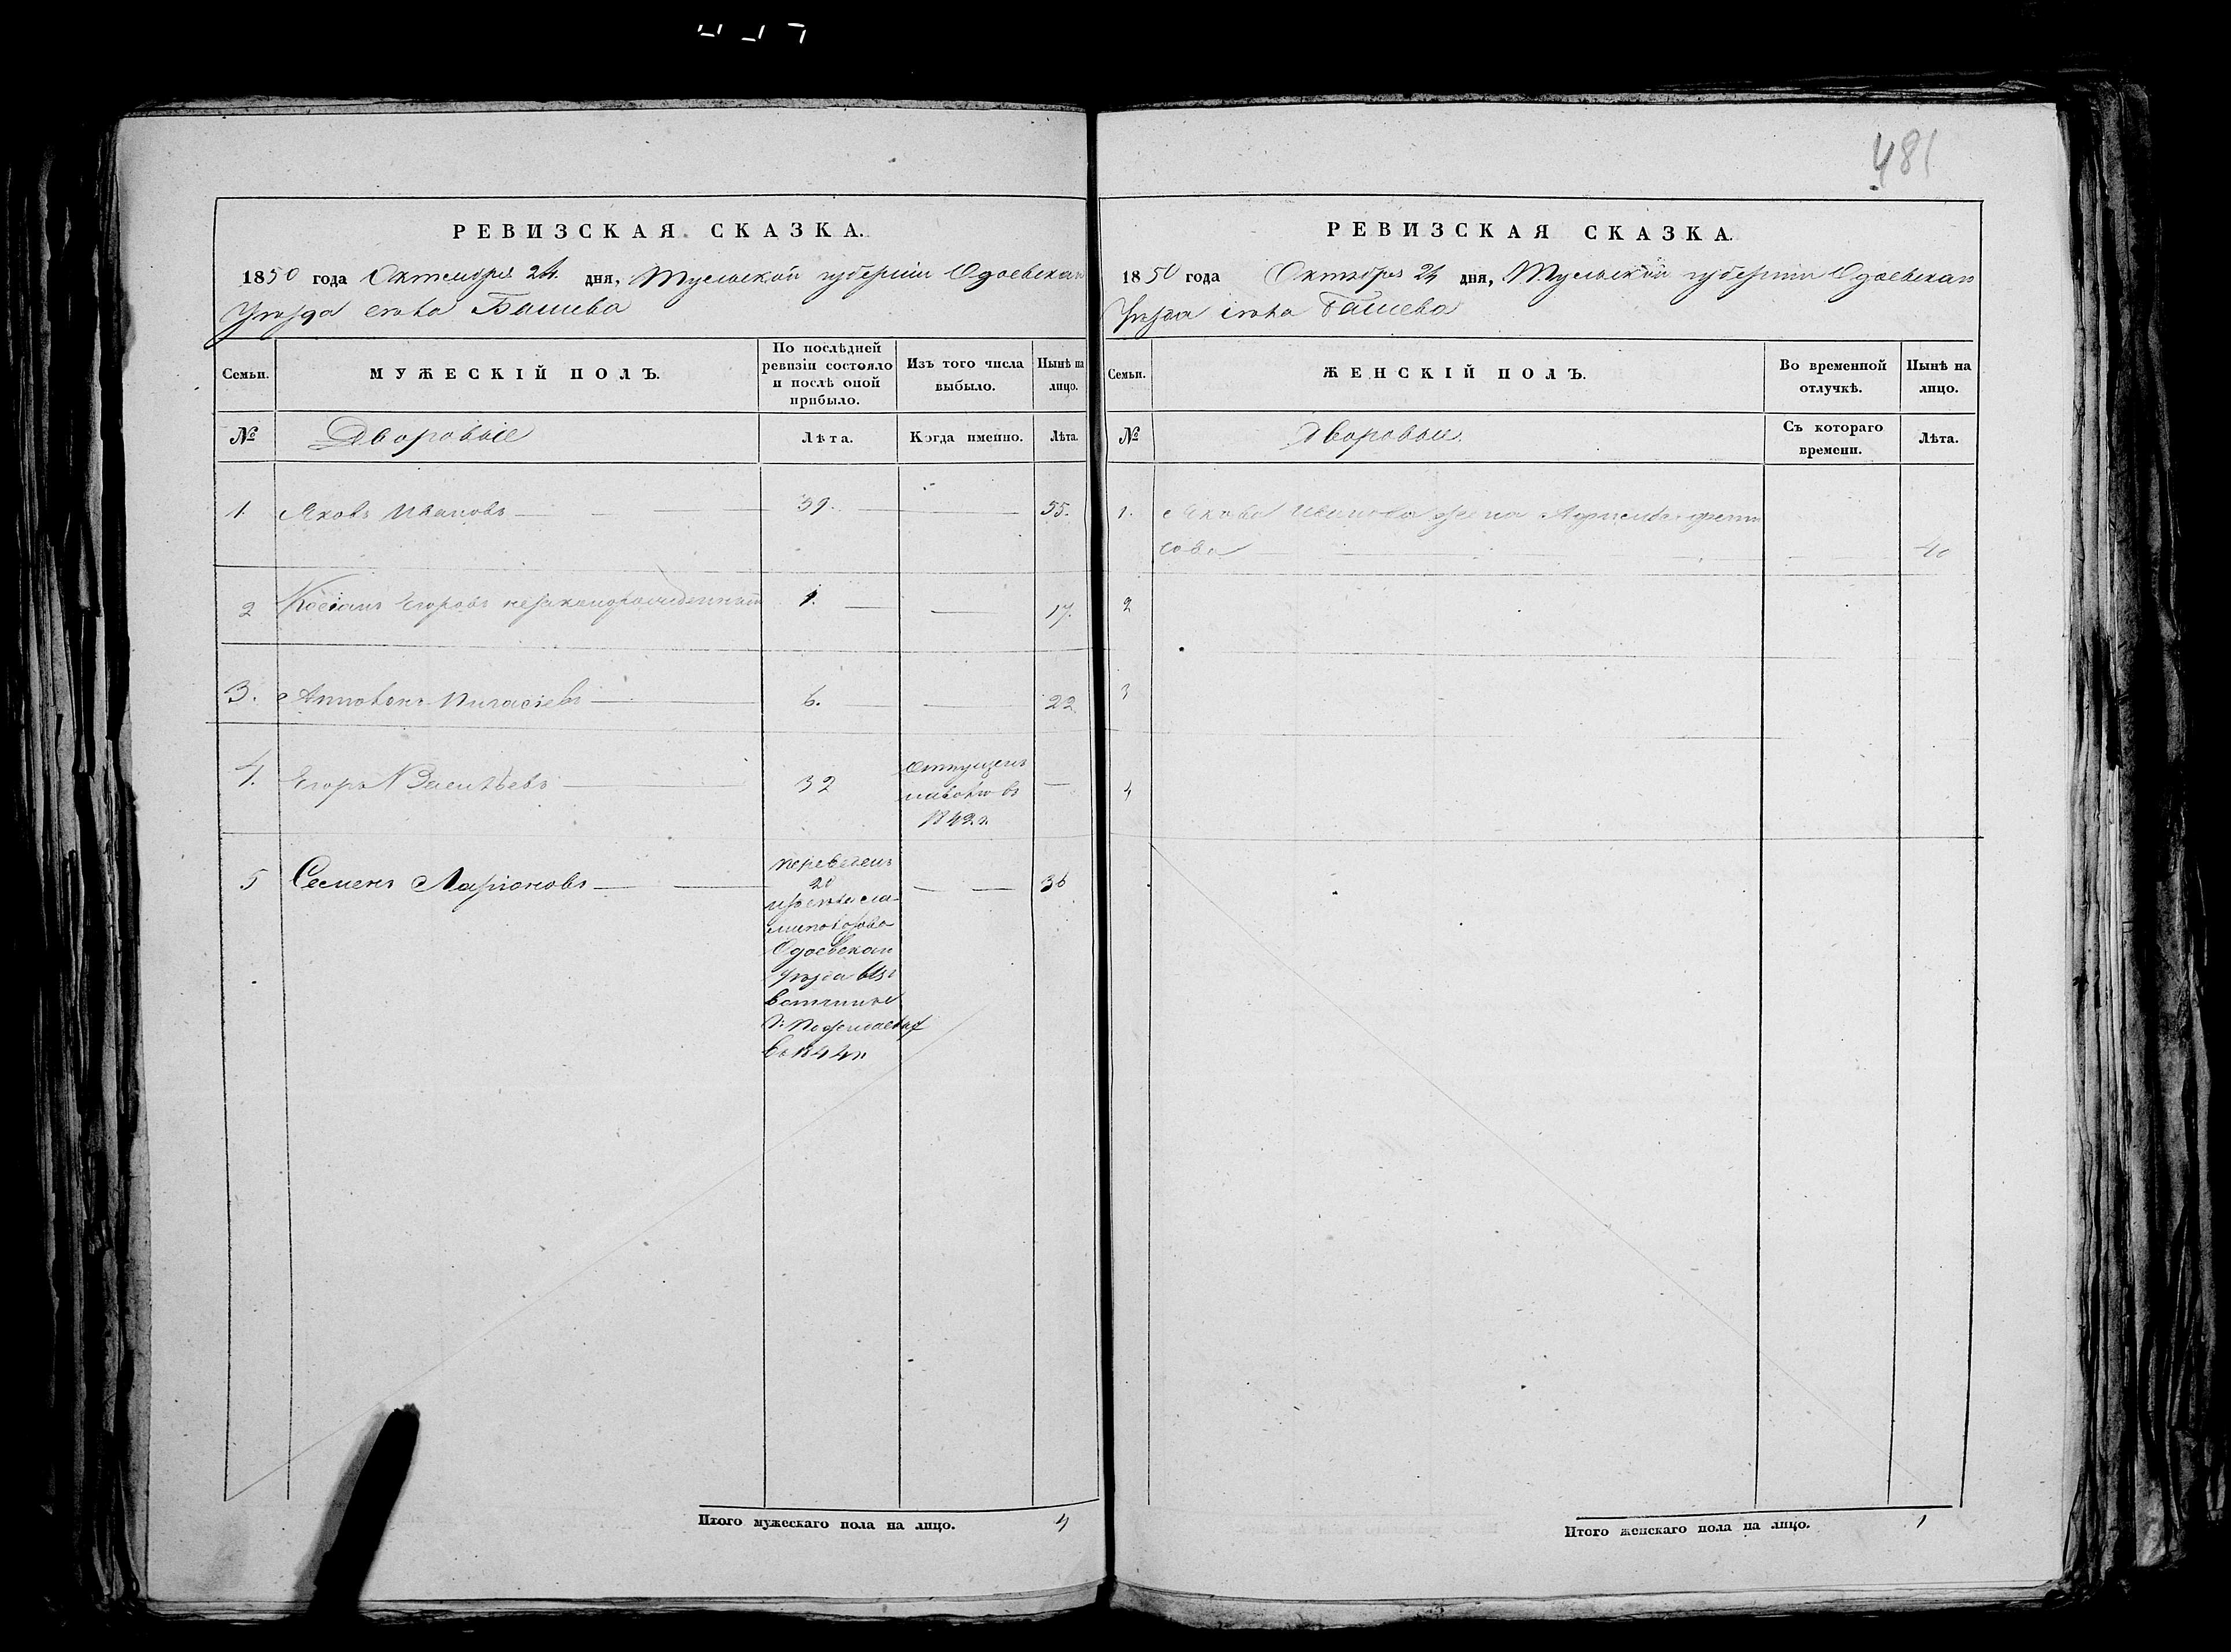 481
РЕВИЗСКАЯ СКАЗКА.
1850 года Октября 24. дня, Тульской губерніи Одоевскаго
Уѣзда села Башева
Семьи.
МУЖЕСКІЙ ПОЛЪ.
По послѣдней ревизіи состояло и послѣ оной прибыло.
Изъ того числа выбыло.
Нынѣ на лицо.
№
Дворовые
Лѣта.
Когда именно.
Лѣта.
1. Яковъ Ивановъ 39. 55.
2 Косіанъ Егоровъ незаконорожденный 1. 17.
3. 6. 22.
4. Егоръ Васильевъ 32
Отпущенъ
на волю въ
1842 г.
5 Семенъ Ларіоновъ 36
переведенъ
20
изъ села
Одоевскаго
Уѣзда изъ
вотчины
въ 1844 г.
Итого мужескаго пола на лицо. 4
РЕВИЗСКАЯ СКАЗКА.
1850 года Октября 24 дня, Тульской губерніи Одоевскаго
Уѣзда села Башева
Семьи.
ЖЕНСКІЙ ПОЛЪ.
Во временной отлучкѣ.
Нынѣ на лицо.
№
Дворовые.
Съ котораго времени.
Лѣта.
1. Якова Иванова жена
сова 40
2
3
4
Итого женскаго пола на лицо. 1